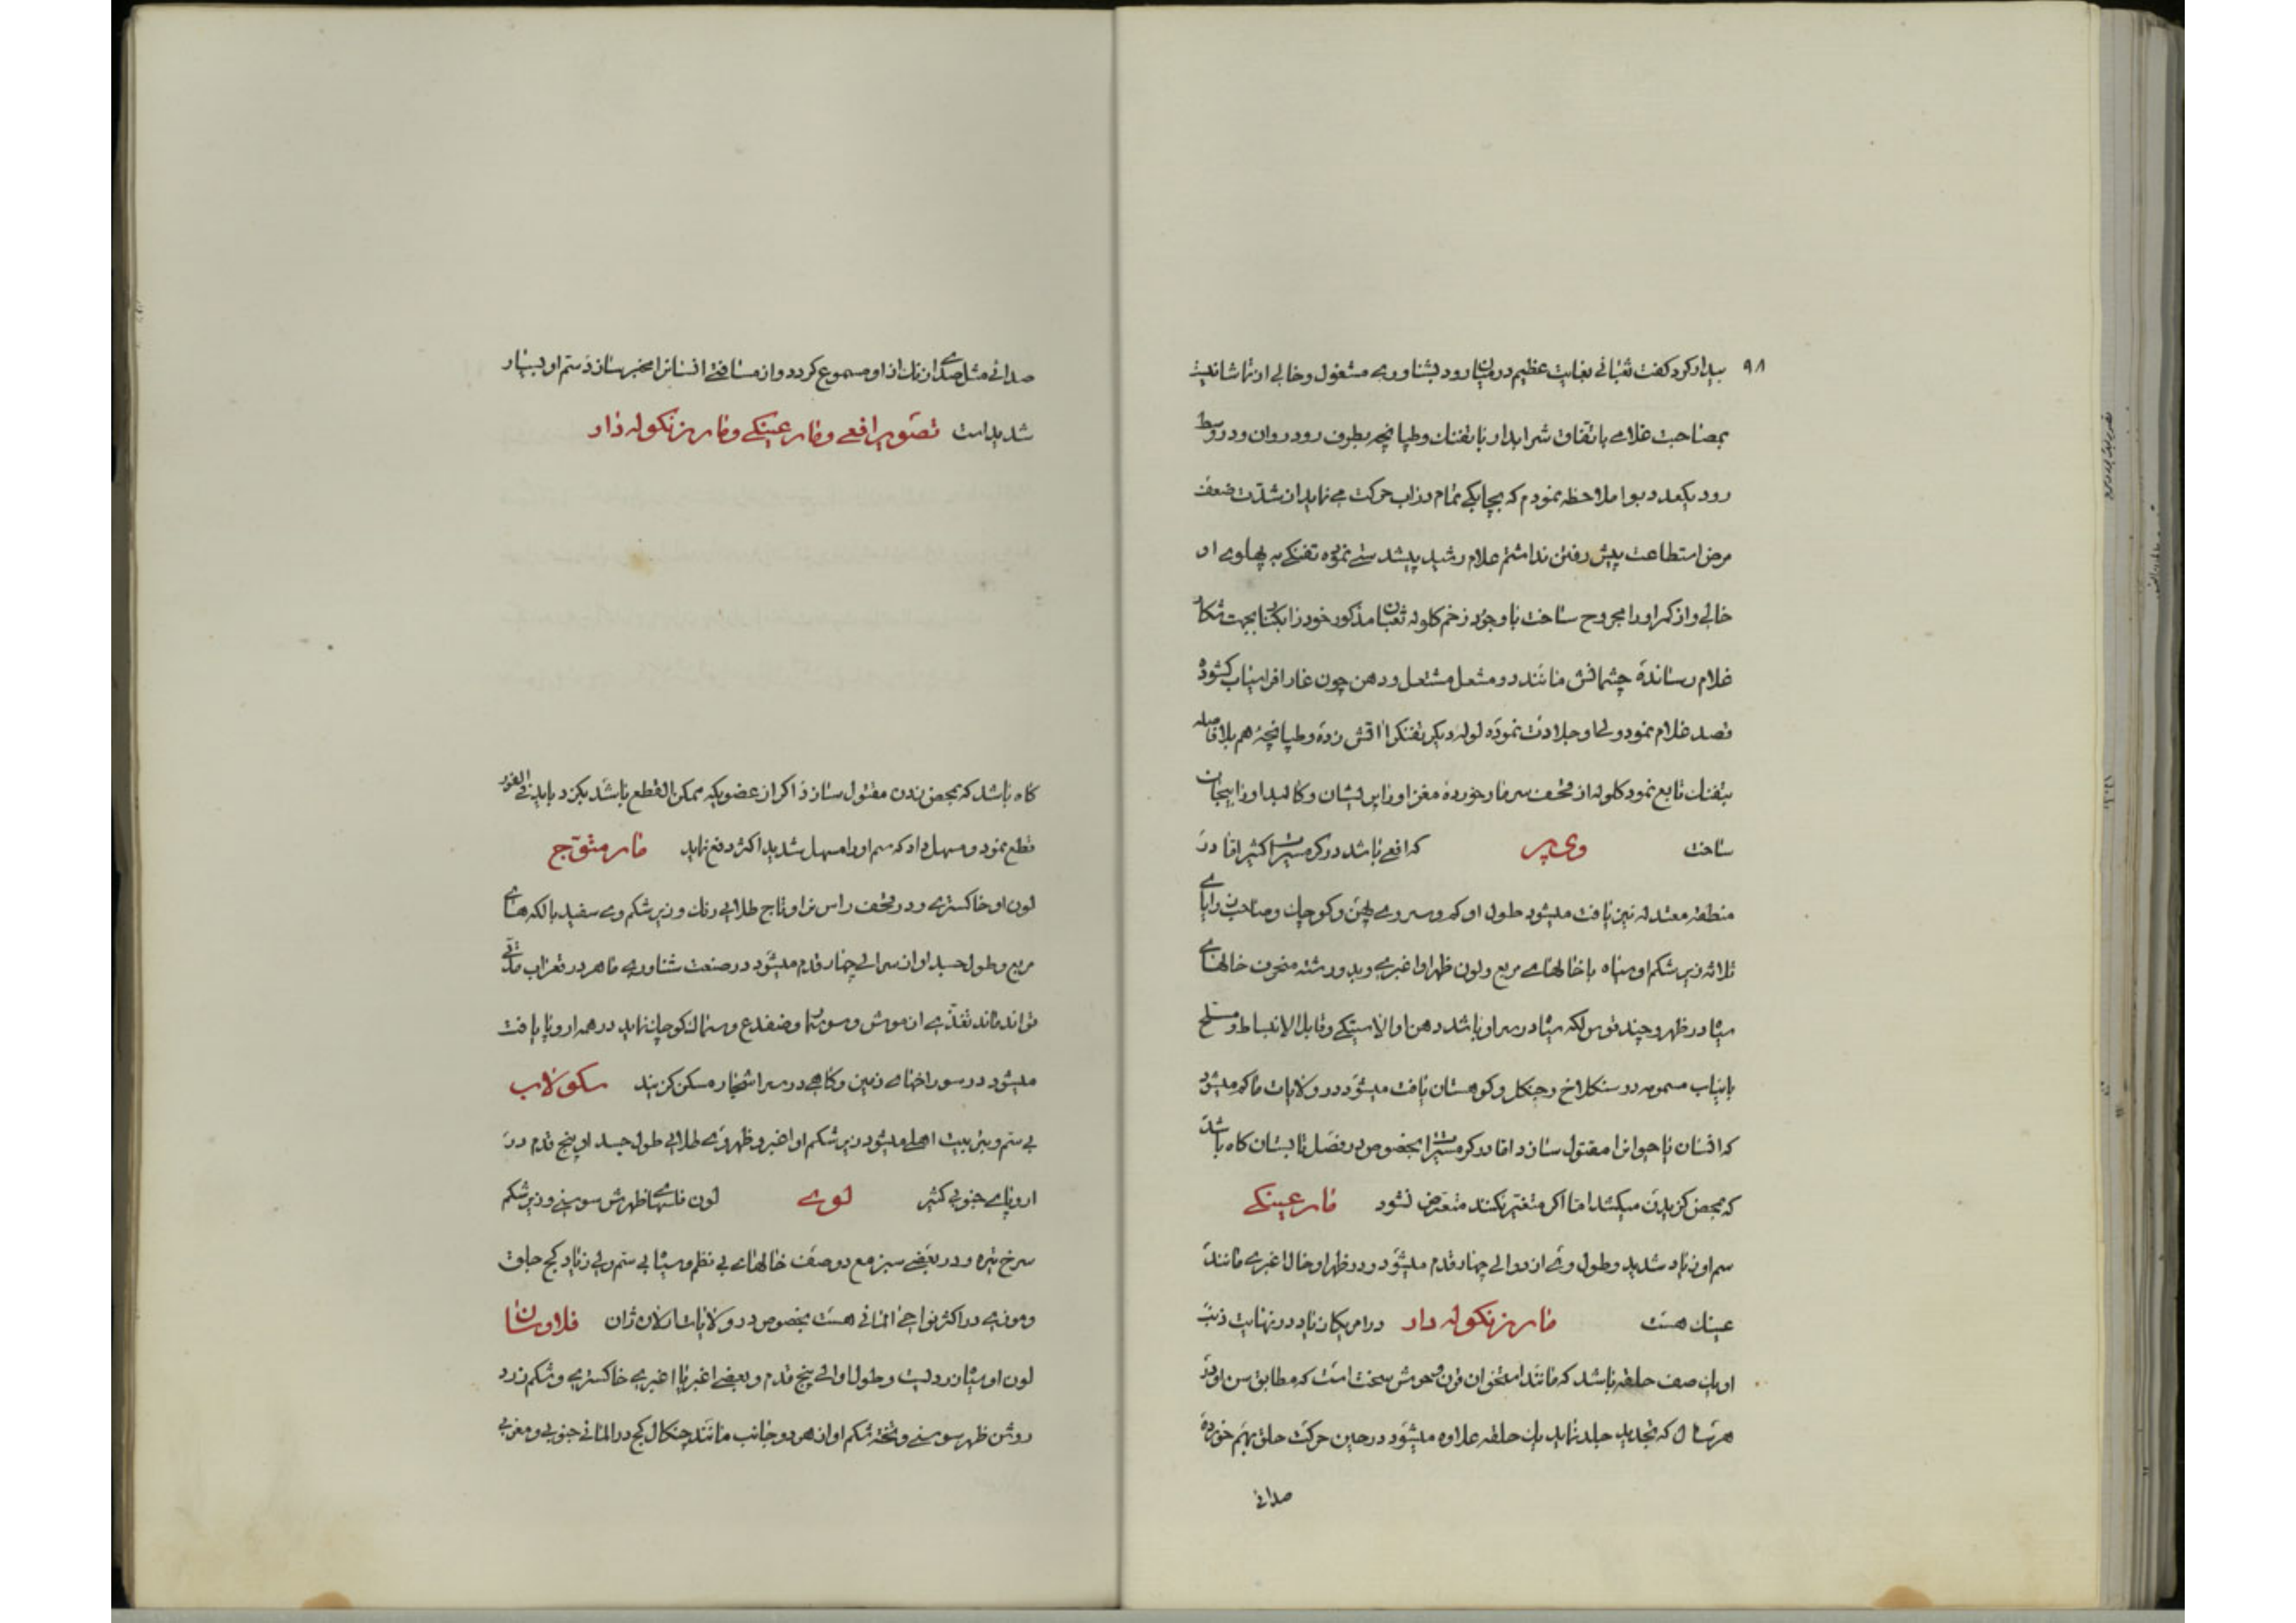 ۹۸
بیدار کرد کفت ثعبانی بغایت عظیم در میان رود بشناوری مشغول و خالی از تماشا نیست
بمصاحبت غلامی باتفاق شرابدار با تفنک و طپانچه بطرف رود روان و در وسط
رود یکعدد بوا ملاحظه نمودم که بچابکی تمام در آب حرکت می نماید از شدت ضعف
مرض استطاعت پیش رفتن نداشتم غلام رشید پیشدستی نموده تفنکی به پهلوی او
خالی و از کمر او را مجروح ساخت با وجود زخم کلوله ثعبان مذکور خود را بکنار بجهت شکار
غلام رسانده چشمانش مانند دو مشعل مشتعل و دهن چون غار افراسیاب کشوده
قصد غلام نمود ولی او جلادت نموده لوله دیکر تفنک را آتش زده و طپانچه هم بلافاصله
بتفنک تابع نمود کلوله از قحف سر مار خورده مغز او را پریشان و کالبد او را بیجان
ساخت وی پر که افعی باشد در کرمسیرات اکثر اما در
منطقه معتدله نیز یافت میشود طول او کم و سر وی پهن و کوچک و صاحب زوایای
ثلاثه زیر شکم او سیاه با خالهای مربع و لون ظهر او اغبری و بدو رشته منحرف خالهای
سیاه در ظهر و چند قوس لکه سیاه در سر او باشد دهن او الاستیکی و قابل الانبساط و مسلح
بانیاب مسمومه در سنکلاخ و جنکل و کوهستان یافت میشود در ولایات ما کم میشود
که انسان یا حیوانرا مقتول سازد اما در کرمسیرات بخصوص در فصل تابستان کاه باشد
که بمحض کزیدن میکشد اما اکر متغیر نکنند متعرض نشود مار عینکی
سم او زیاد شدید و طول وی از دو الی چهار قدم میشود و در ظهر او خال اغبری مانند
عینک هست مار زنکوله دار در امریکا زیاد در نهایت ذنب
او یک صف حلقه باشد که مانند استخوان قرن وحوش سخت است که مطابق سن او بود
هر سال که تجدید جلد نماید یک حلقه علاوه میشود در حین حرکت حلق بهم خورده
صدائی
صدائی مثل صدای زنک از او مسموع کردد و از مسافتی انسانرا مخبر سازد سم او بسیار
شدید است تصویر افعی و مار عینکی و مار زنکوله دار
کاه باشد که بمحض زدن مقتول سازد اکر از عضویکه ممکن القطع باشد بکزد باید فی الفور
قطع نمود و مسهل داد که سم او را مسهل شدید اکثر دفع نماید مار متوّج
لون او خاکستری و در قحف راس او تاج طلایی رنک و زیر شکم وی سفید با لکه های
مربع و طول جسد او از سه الی چهار قدم میشود در صنعت شناوری ماهر در قعر آب مدتی
تواند ماند تغذی از موش و سوسمار و ضفدع و سمک کوچک نماید در همه اروپا یافت
میشود در سوراخهای زمین و کاهی در سر اشجار مسکن کزیند سکولاب
بی سم و نیز بیت اهلی میشود زیر شکم او اغبر و ظهر وی طلایی طول جسد او پنج قدم در
اروپای جنوبی کثیر لوی لون فلسهای ظهرش سوسنی و زیر شکم
سرخ تیره و در بعضی سبز مع دو صف خالهای بی نظم و سیاه بی سم ولی زیاد کج خلق
و موذی در اکثر نواحی المانی هست بخصوص در ولایات ارلان ژان فلاوسان
لون او سیاه زردیست و طول او الی پنج قدم و بعضی اغبر یا اغبری خاکستری و شکم زرد
روشن ظهر سوسنی و تخته شکم او از هر دو جانب مانند چنکال کج در المانی جنوبی و مغربی